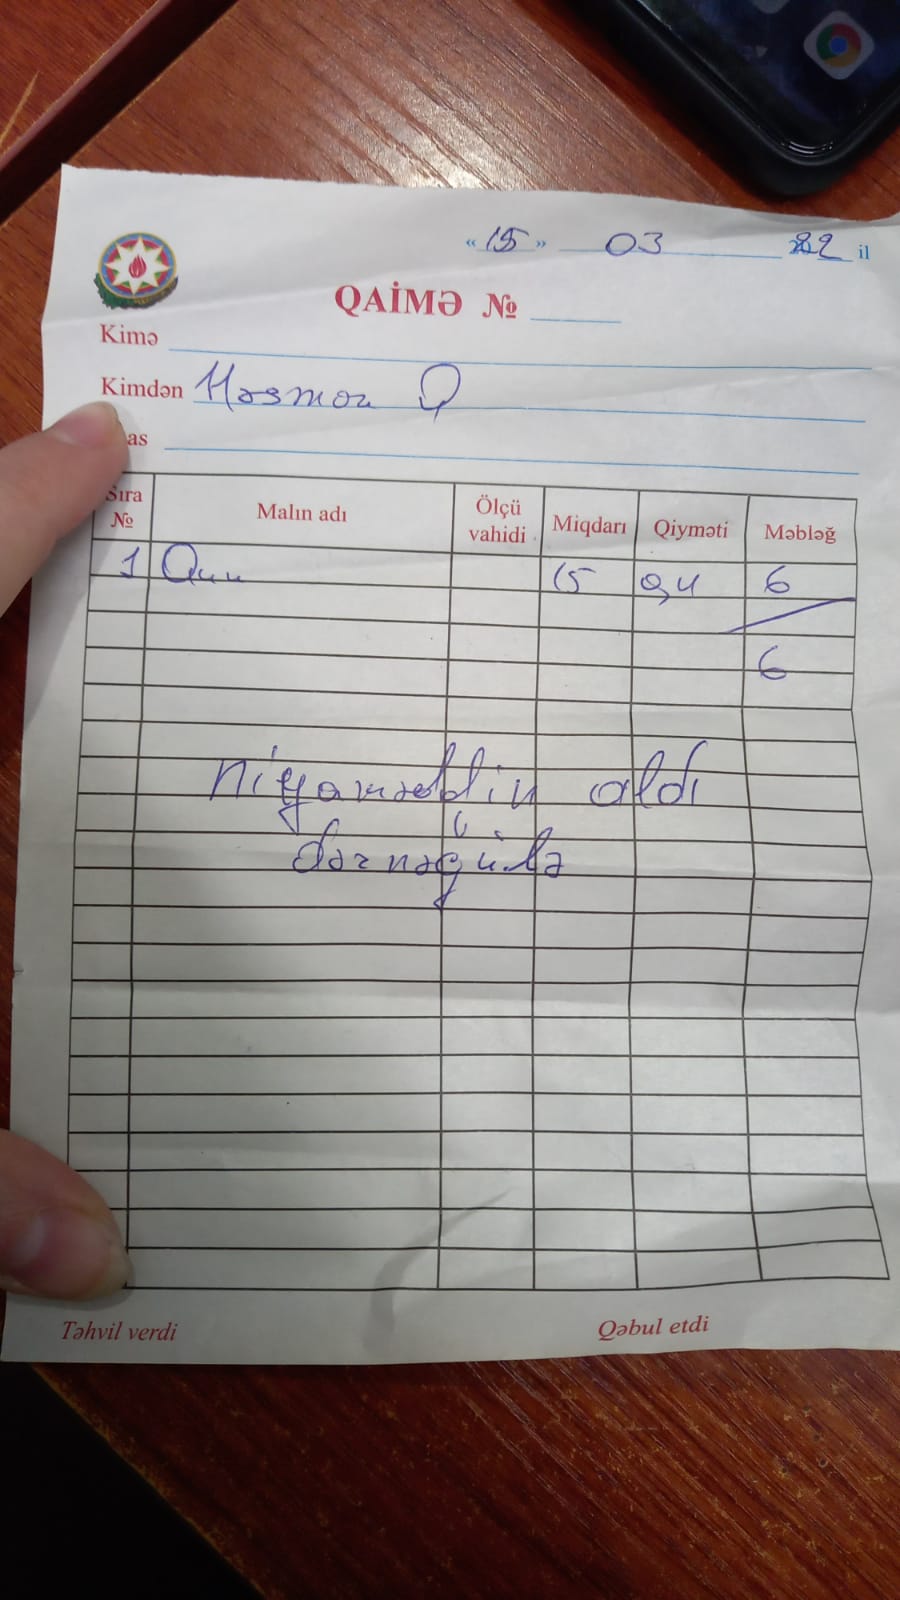 « 15 » 03 22 il
QAİMƏ №
Kimə
Kimdən Həsmən Q
as
Sıra № Malın adı Ölçü vahidi Miqdarı Qiyməti Məbləğ
1 15 0,4 6
6
niyaməddin aldı
dərnəgülə
Təhvil verdi Qəbul etdi